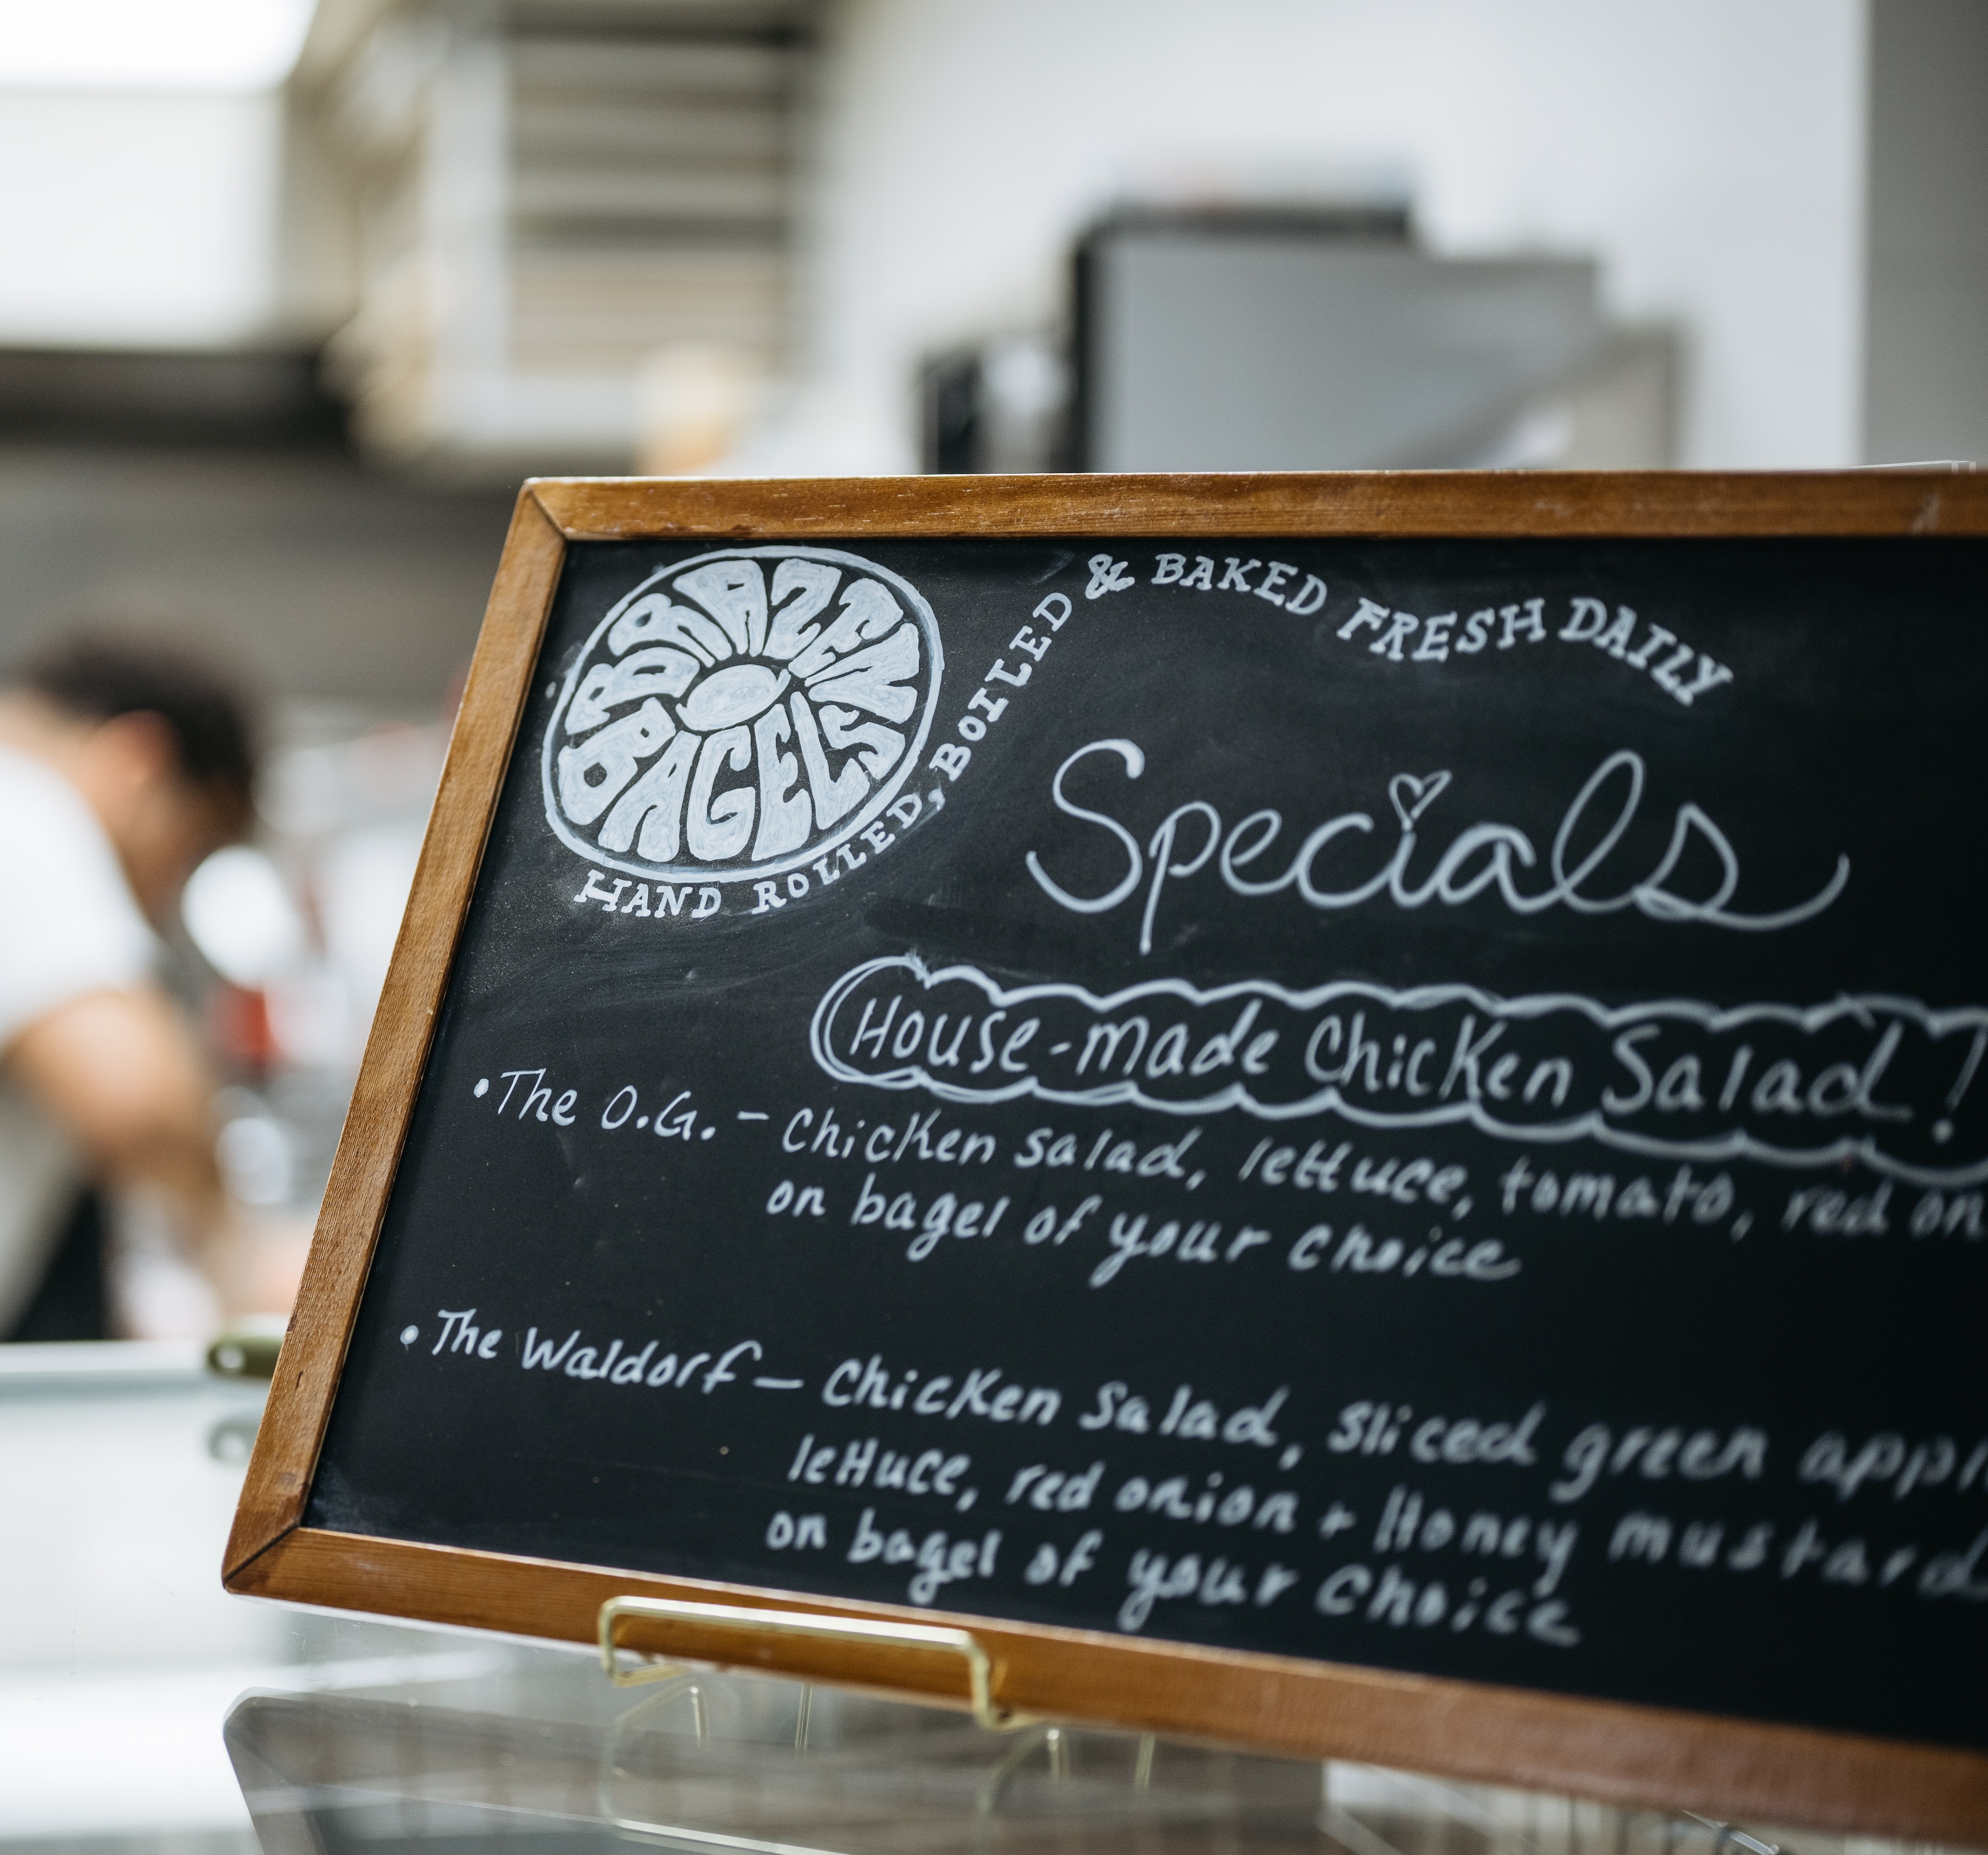 BRAZEN
BAGELS
HAND ROLLED, BOILED & BAKED FRESH DAILY
Specials
House-made Chicken Salad!
• The O.G. - Chicken salad, lettuce, tomato, red on
on bagel of your choice
• The Waldorf - Chicken Salad, Sliced green appl
lettuce, red onion + Honey mustard
on bagel of your choice